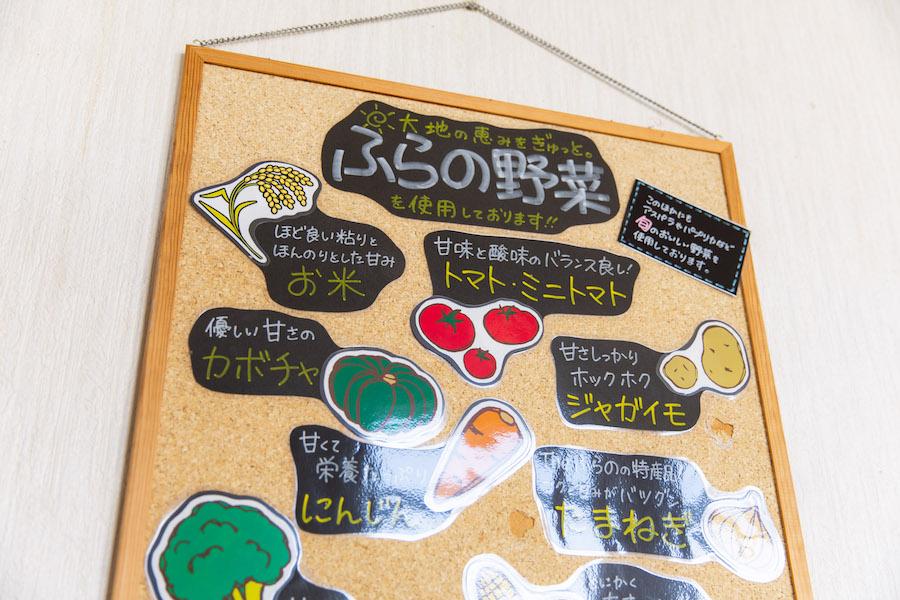 大地の恵みをぎゅっと。
ふらの野菜
を使用しております!!
このほかにも
アスパラやパプリカなど
旬のおいしい野菜を
使用しております。
ほど良い粘りと
ほんのりとした甘み
お米
甘味と酸味のバランス良し!
トマト・ミニトマト
優しい甘さの
カボチャ
甘さしっかり
ホックホク
ジャガイモ
甘くて
栄養
にんじん
ふらのの特産品
甘みがバツグン
たまねぎ
とにかく